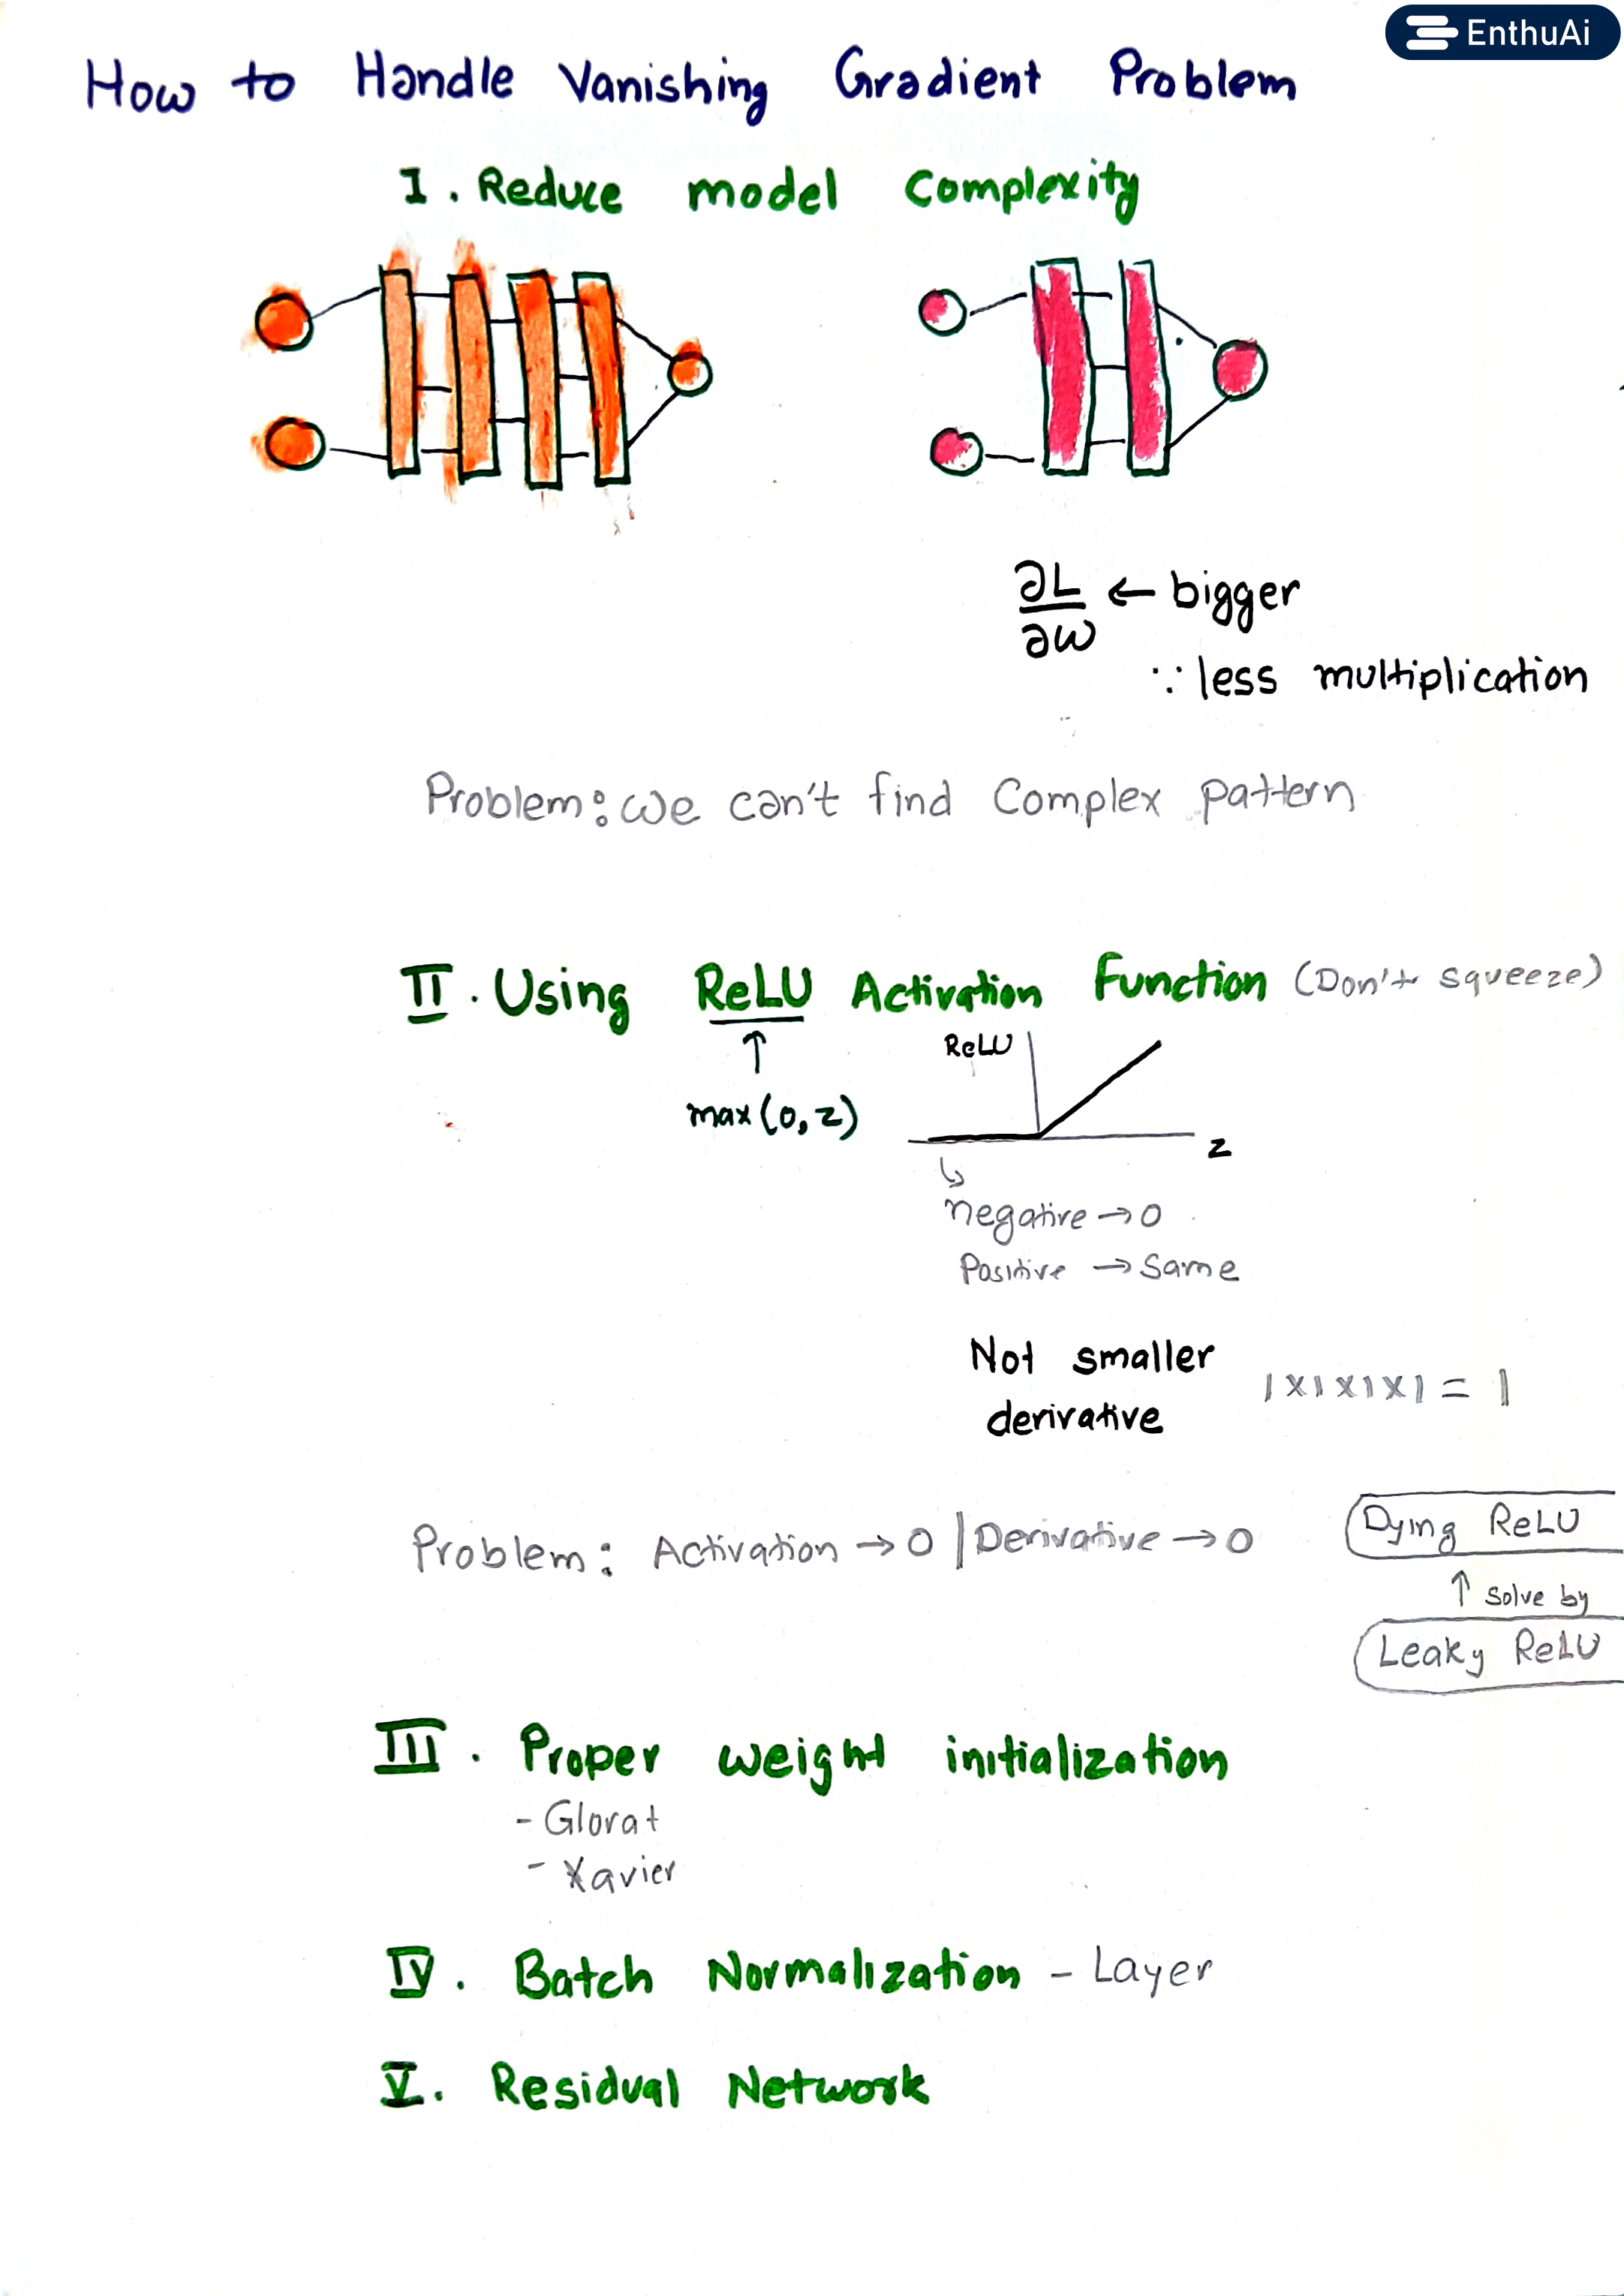 EnthuAi
How to Handle Vanishing Gradient Problem
I. Reduce model Complexity
∂L/∂w ← bigger
∵ less multiplication
Problem: we can't find Complex pattern
II. Using ReLU Activation Function (Don't squeeze)
↑
max(0,z)
ReLU
z
↳
negative → 0
Positive → Same
Not smaller
derivative
1x1x1x1 = 1
Problem: Activation → 0 | Derivative → 0
Dying ReLU
↑ solve by
Leaky ReLU
III. Proper weight initialization
- Glorat
- Xavier
IV. Batch Normalization - Layer
V. Residual Network